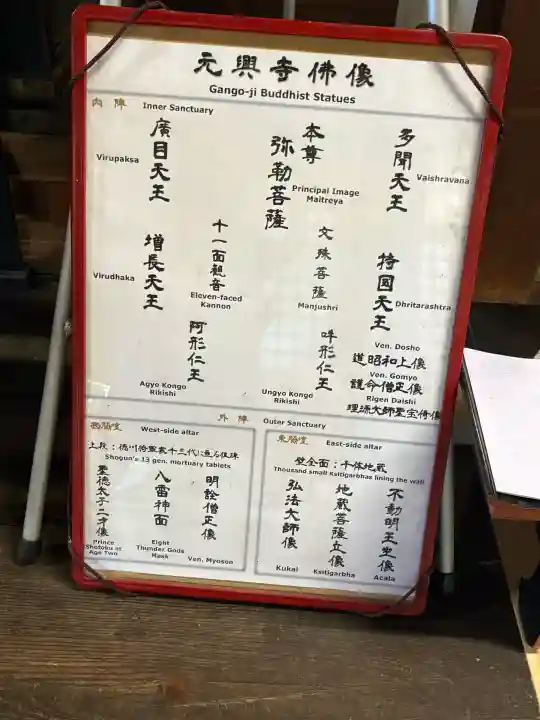 元興寺佛像
Gango-ji Buddhist Statues
内陣 Inner Sanctuary
多聞天王
Vaishravana
本尊
弥勒菩薩
Principal Image
Maitreya
廣目天王
Virupaksa
持国天王
Dhritarashtra
文殊菩薩
Manjushri
十一面観音
Eleven-faced
Kannon
増長天王
Virudhaka
吽形仁王
Ungyo Kongo
Rikishi
阿形仁王
Agyo Kongo
Rikishi
Ven. Dosho
道昭和上像
Ven. Gomyo
護命僧正像
Rigen Daishi
理源大師聖宝倚像
外陣 Outer Sanctuary
西脇壇 West-side altar
上段：徳川将軍家十三代
Shogun's 13 gen. mortuary tablets
明詮僧正像
Ven. Myosen
八雷神面
Eight
Thunder Gods
Mask
聖徳太子二才像
Prince
Shotoku at
Age Two
東脇壇 East-side altar
壁全面：千体地蔵
Thousand small Ksitigarbhas lining the wall
不動明王坐像
Acala
地蔵菩薩立像
Ksitigarbha
弘法大師像
Kukai